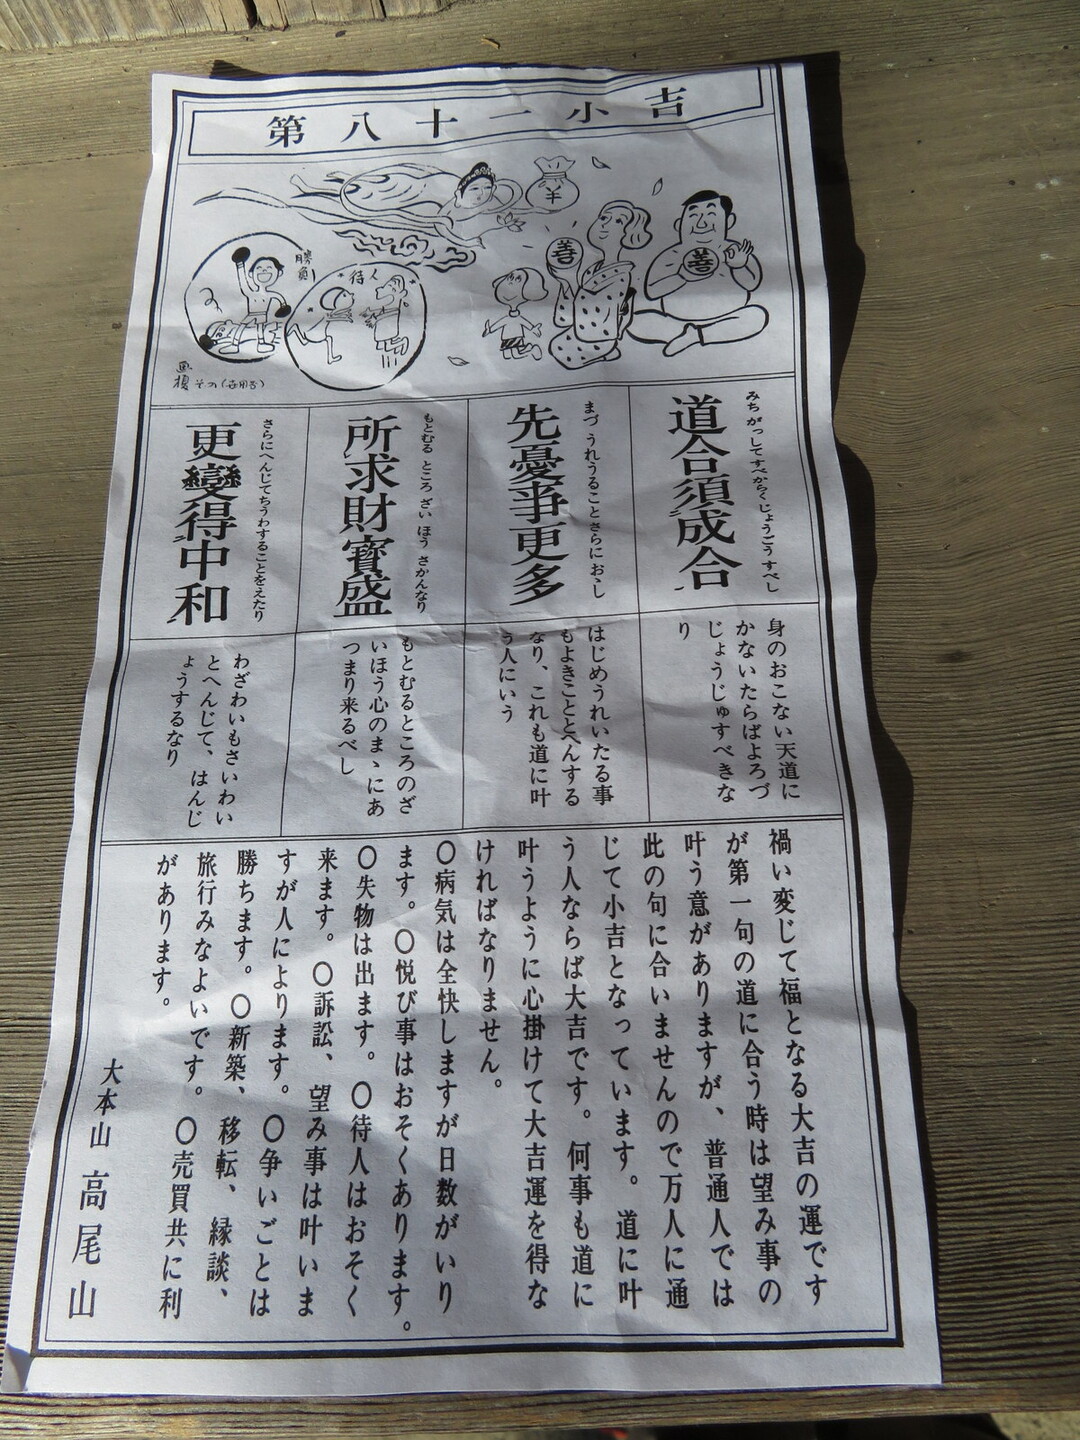 第八十一小吉
勝負
待人
善
善
¥
みちがっしてすべからくじょうごうすべし
道合須成合
身のおこない天道に
かないたらばよろづ
じょうじゅすべきな
り
まづうれうることさらにおゝし
先憂事更多
はじめうれいたる事
もよきこととへんする
なり、これも道に叶
う人にいう
もとむるところざいほうさかんなり
所求財寳盛
もとむるところのざ
いほう心のまゝにあ
つまり来るべし
さらにへんじてちうわすることをえたり
更變得中和
わざわいもさいわい
とへんじて、はんじ
ょうするなり
禍い変じて福となる大吉の運です
が第一句の道に合う時は望み事の
叶う意がありますが、普通人では
此の句に合いませんので万人に通
じて小吉となっています。道に叶
う人ならば大吉です。何事も道に
叶うように心掛けて大吉運を得な
ければなりません。
〇病気は全快しますが日数がいり
ます。〇悦び事はおそくあります。
〇失物は出ます。〇待人はおそく
来ます。〇訴訟、望み事は叶いま
すが人によります。〇争いごとは
勝ちます。〇新築、移転、縁談、
旅行みなよいです。〇売買共に利
があります。
大本山 高尾山